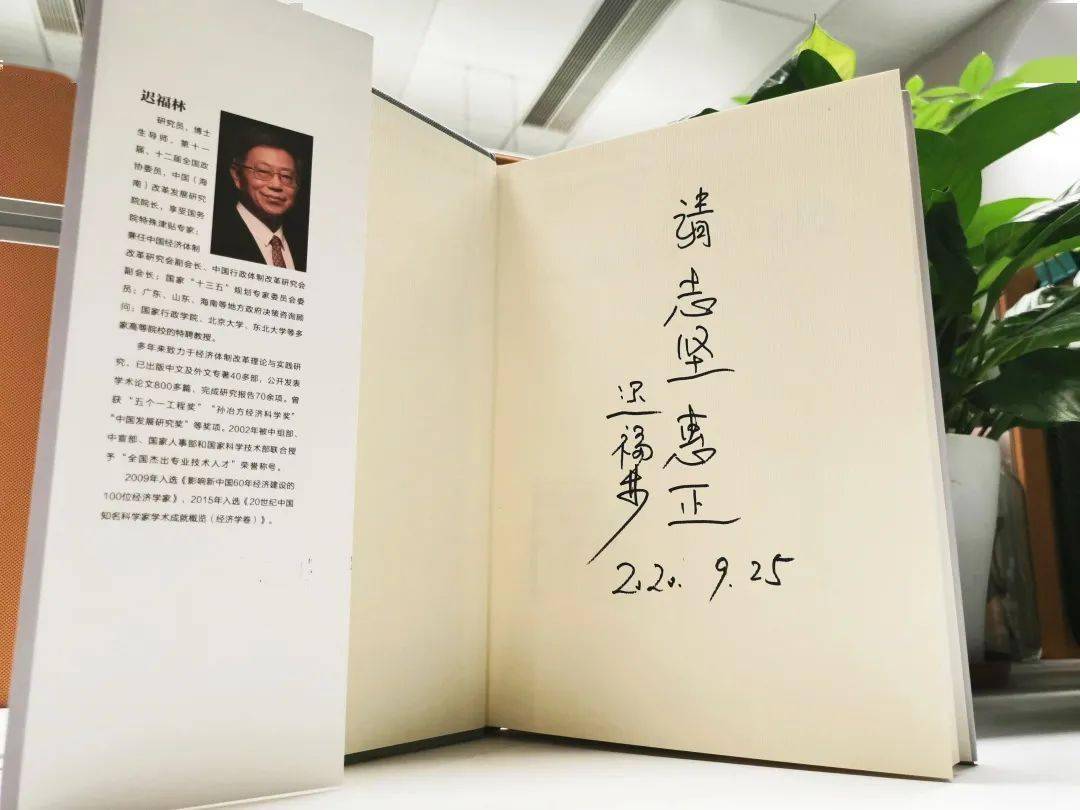 迟福林
研究员，博士
生导师。第十一
届、十二届全国政
协委员，中国（海
南）改革发展研究
院院长，享受国务
院特殊津贴专家；
兼任中国经济体制
改革研究会副会长、中国行政体制改革研究会
副会长；国家“十三五”规划专家委员会委
员；广东、山东、海南等地方政府决策咨询顾
问；国家行政学院、北京大学、东北大学等多
家高等院校的特聘教授。
多年来致力于经济体制改革理论与实践研
究，已出版中文及外文专著40多部，公开发表
学术论文800多篇、完成研究报告70余项。曾
获“五个一工程奖”“孙冶方经济科学奖”
“中国发展研究奖”等奖项。2002年被中组部、
中宣部、国家人事部和国家科学技术部联合授
予“全国杰出专业技术人才”荣誉称号。
2009年入选《影响新中国60年经济建设的
100位经济学家》、2015年入选《20世纪中国
知名科学家学术成就概览（经济学卷）》。
请志坚惠正
迟福林
2020. 9.25